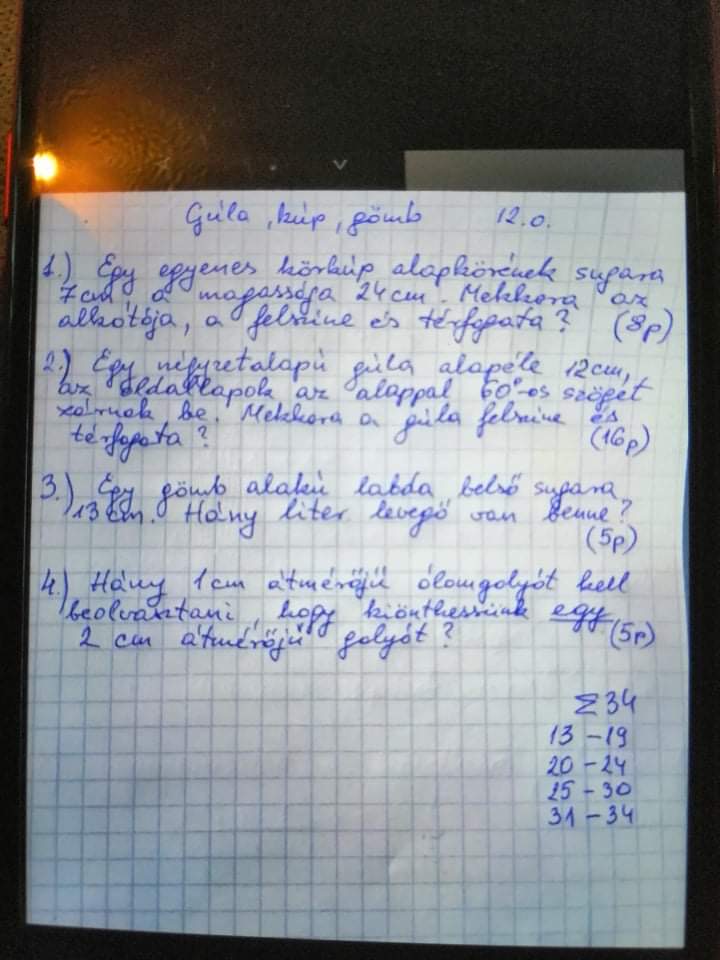 Gúla, kúp, gömb 12.o.
1.) Egy egyenes körkúp alapkörének sugara
7cm, a magassága 24cm. Mekkora az
alkotója, a felszíne és térfogata? (8p)
2.) Egy négyzetalapú gúla alapéle 12cm,
az oldallapok az alappal 60°-os szöget
zárnak be. Mekkora a gúla felszíne és
térfogata? (16p)
3.) Egy gömb alakú labda belső sugara
13cm. Hány liter levegő van benne?
(5p)
4.) Hány 1cm átmérőjű ólomgolyót kell
beolvasztani, hogy kiönthessünk egy
2 cm átmérőjű golyót? (5p)
Σ34
13 - 19
20 - 24
25 - 30
31 - 34